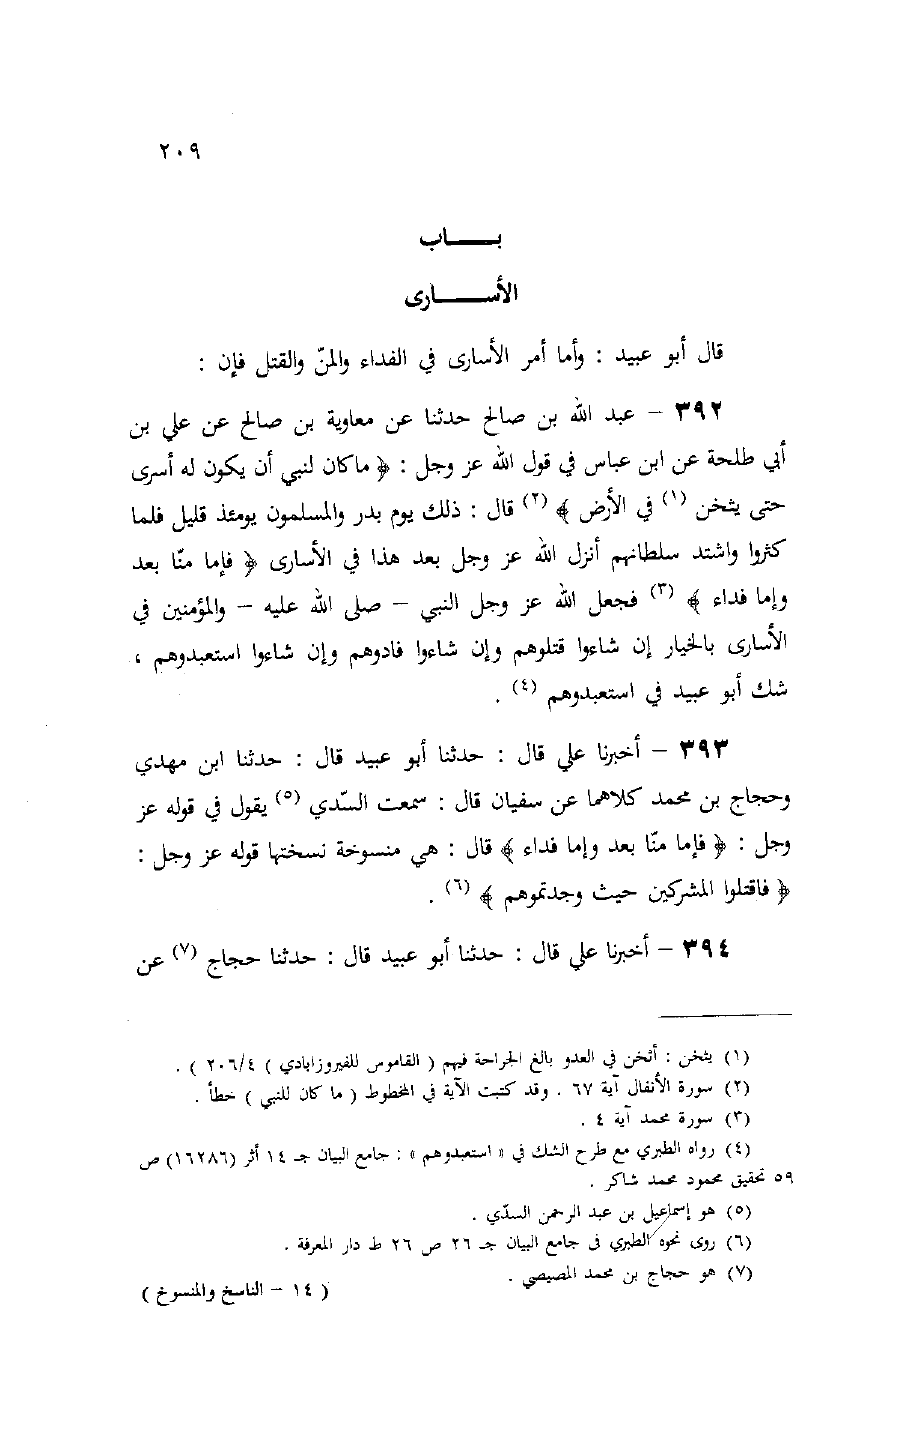 ٢٠٩
بـــــاب
الأســـــارى
قال أبو عبيد : وأما أمر الأسارى في الفداء والمنّ والقتل فإن :
٣٩٢ – عبد الله بن صالح حدثنا عن معاوية بن صالح عن علي بن
أبي طلحة عن ابن عباس في قول الله عز وجل : ﴿ ماكان لنبي أن يكون له أسرى
حتى يثخن (١) في الأرض ﴾ (٢) قال : ذلك يوم بدر والمسلمون يومئذ قليل فلما
كثروا واشتد سلطانهم أنزل الله عز وجل بعد هذا في الأسارى ﴿ فإما منّا بعد
وإما فداء ﴾ (٣) فجعل الله عز وجل النبي – صلى الله عليه – والمؤمنين في
الأسارى بالخيار إن شاءوا قتلوهم وإن شاءوا فادوهم وإن شاءوا استعبدوهم ،
شك أبو عبيد في استعبدوهم (٤) .
٣٩٣ – أخبرنا علي قال : حدثنا أبو عبيد قال : حدثنا ابن مهدي
وحجاج بن محمد كلاهما عن سفيان قال : سمعت السّدي (٥) يقول في قوله عز
وجل : ﴿ فإما منّا بعد وإما فداء ﴾ قال : هي منسوخة نسختها قوله عز وجل :
﴿ فاقتلوا المشركين حيث وجدتموهم ﴾ (٦) .
٣٩٤ – أخبرنا علي قال : حدثنا أبو عبيد قال : حدثنا حجاج (٧) عن
(١) يثخن : أثخن في العدو بالغ الجراحة فيهم ( القاموس للفيروزابادي ) ٢٠٦/٤ ) .
(٢) سورة الأنفال آية ٦٧ . وقد كتبت الآية في المخطوط ( ما كان للنبي ) خطأ .
(٣) سورة محمد آية ٤ .
(٤) رواه الطبري مع طرح الشك في « استعبدوهم » : جامع البيان جـ ١٤ أثر (١٦٢٨٦) ص
٥٩ تحقيق محمود محمد شاكر .
(٥) هو إسماعيل بن عبد الرحمن السدّي .
(٦) روى نحوه الطبري فى جامع البيان جـ ٢٦ ص ٢٦ ط دار المعرفة .
(٧) هو حجاج بن محمد المصيصي .
( ١٤ – الناسخ والمنسوخ )